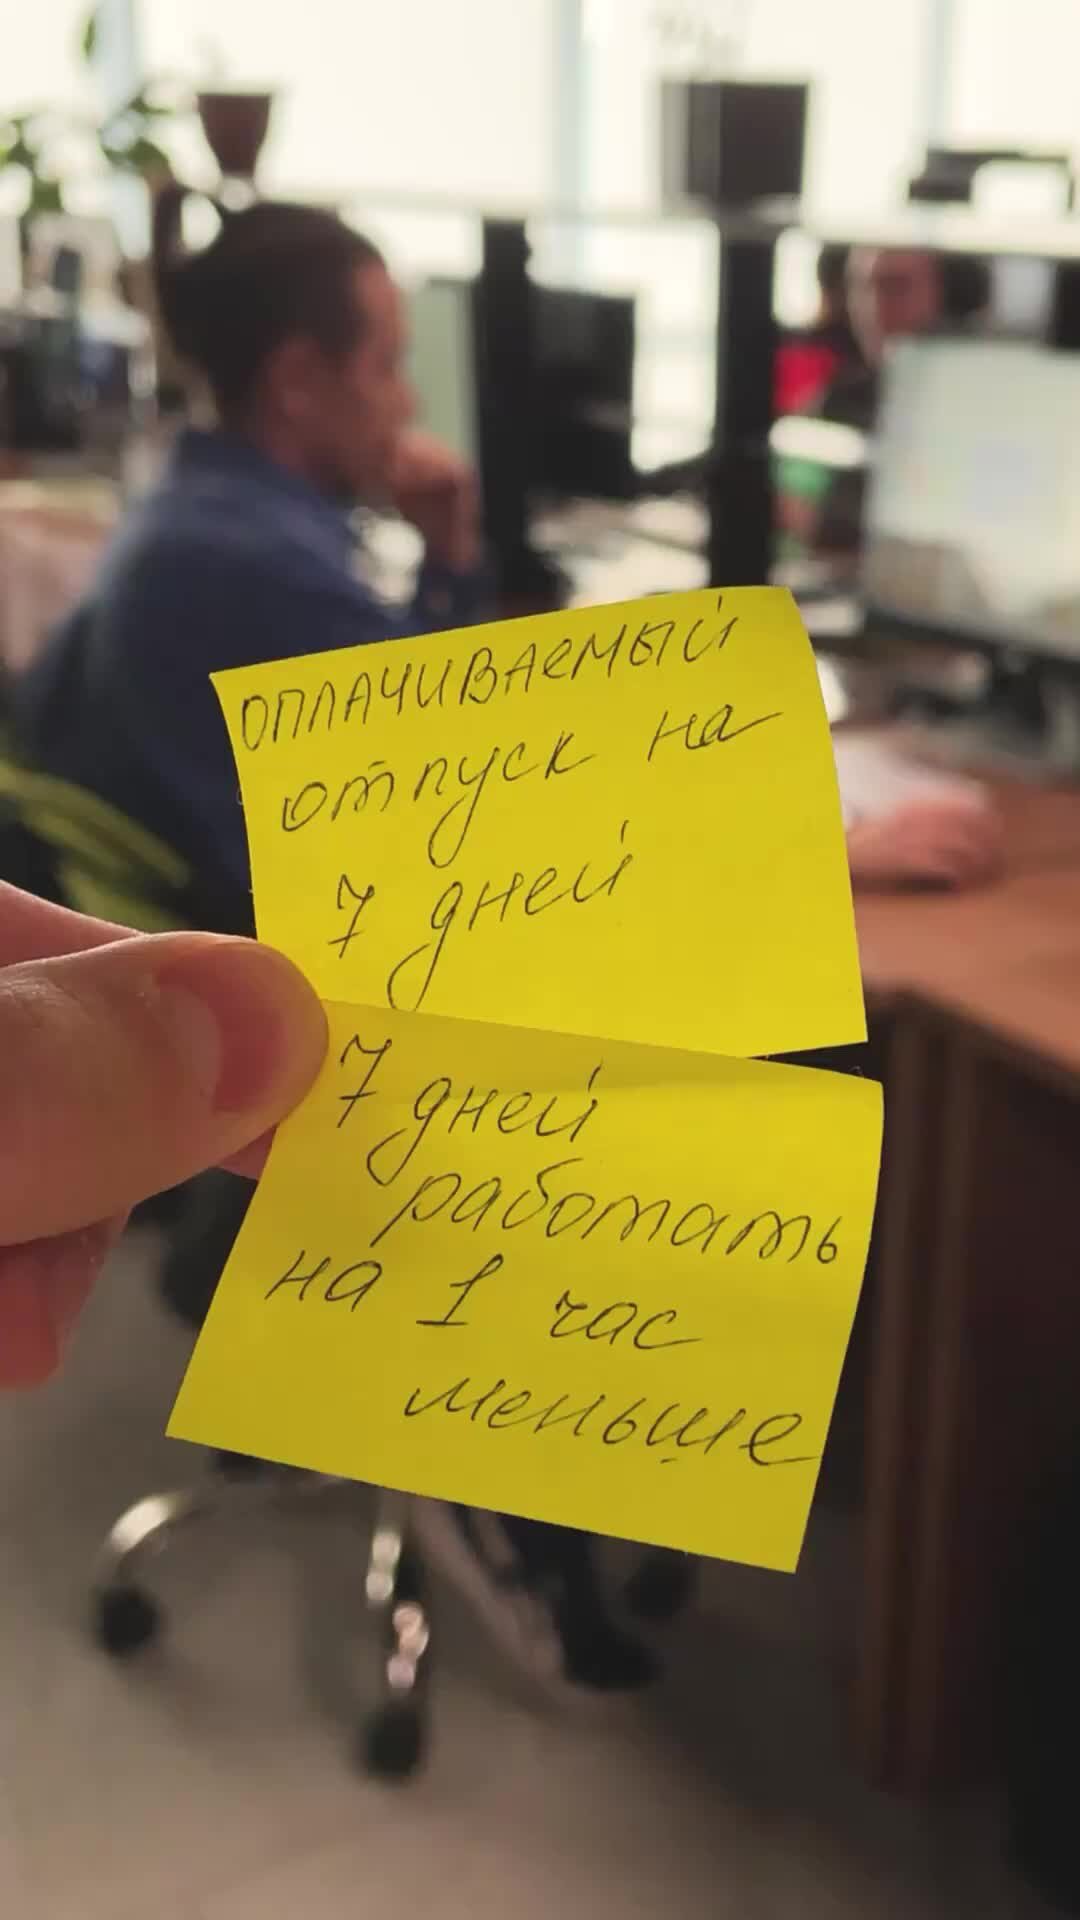 ОПЛАЧИВАЕМЫЙ
отпуск на
7 дней
7 дней
работать
на 1 час
меньше